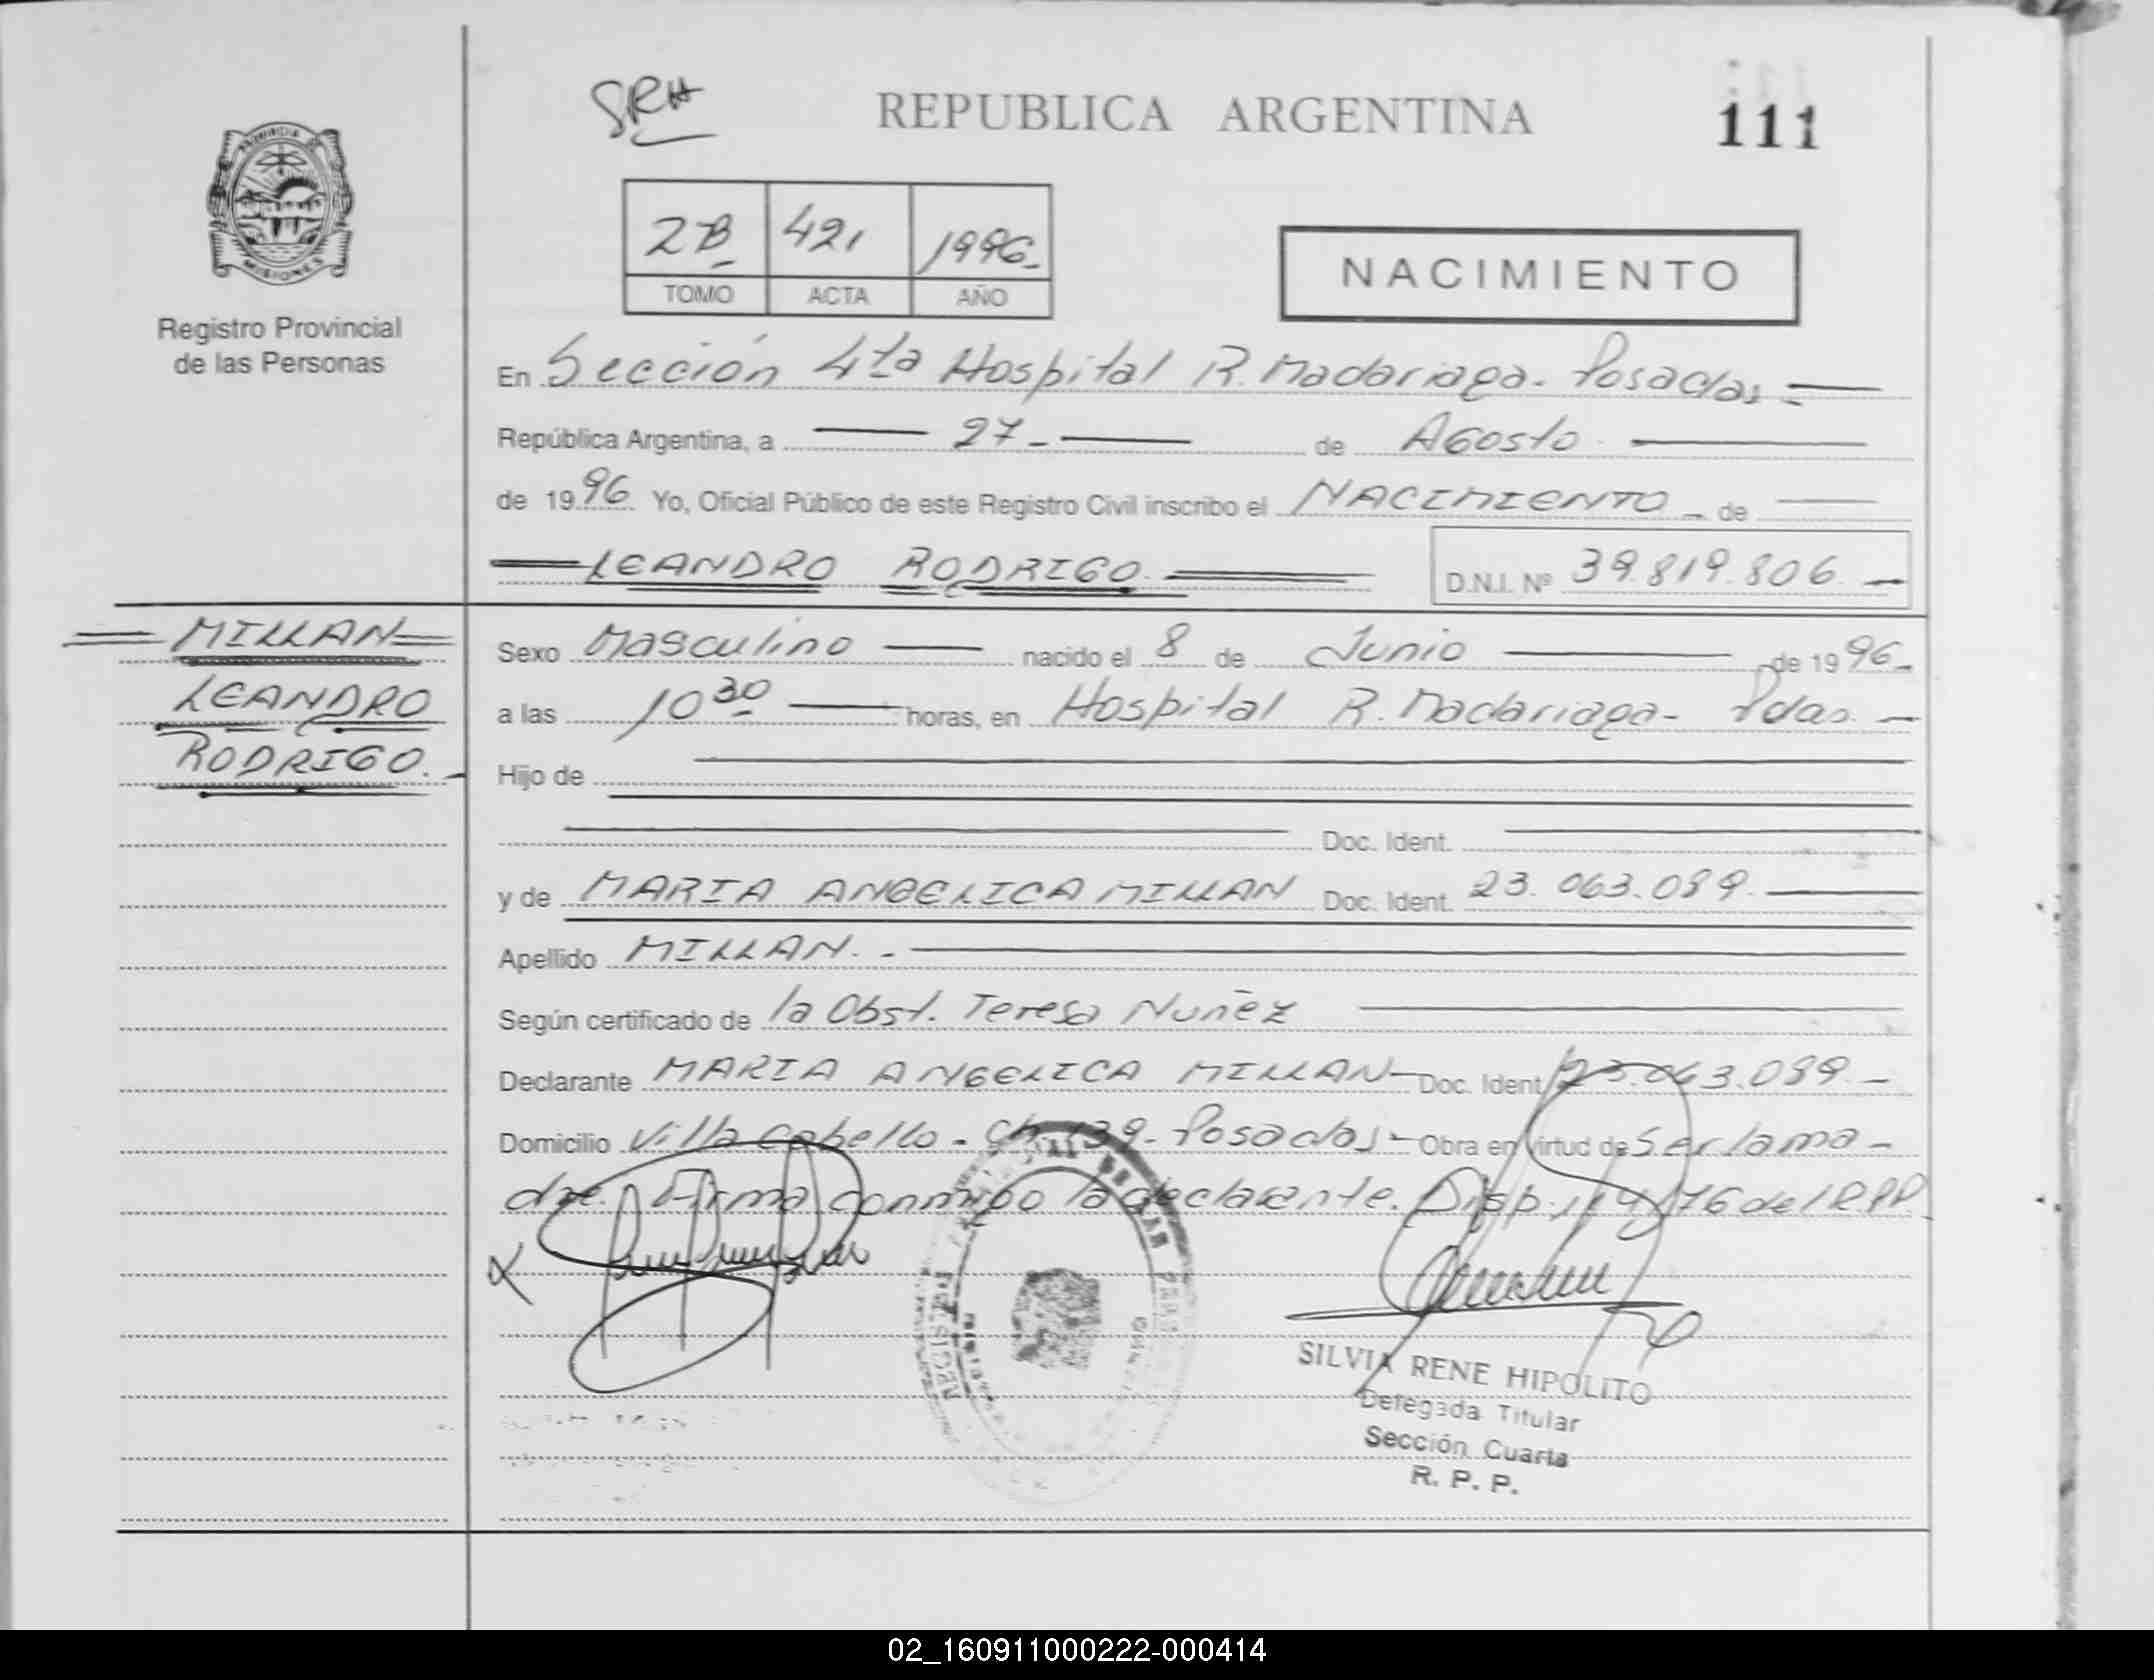 SRH
REPUBLICA ARGENTINA
111
PROVINCIA DE
MISIONES
Registro Provincial
de las Personas
2B 421 1996-
TOMO ACTA AÑO
NACIMIENTO
En Sección 4ta Hospital R. Madariaga- Posadas-
República Argentina, a 27- de Agosto
de 1996 Yo, Oficial Público de este Registro Civil inscribo el NACIMIENTO- de
LEANDRO RODRIGO D.N.I. Nº 39.819.806.-
MILLAN
LEANDRO
RODRIGO.-
Sexo Masculino nacido el 8 de Junio de 1996-
a las 10 30 horas, en Hospital R. Madariaga- Pdas.-
Hijo de
Doc. Ident.
y de MARIA ANGELICA MILLAN Doc. Ident. 23.063.089.
Apellido MILLAN.-
Según certificado de la Obst. Teresa Nuñez
Declarante MARIA ANGELICA MILLAN- Doc. Ident. 23.063.089.-
Domicilio Villa Cabello- Ch 139- Posadas- Obra en virtud de Ser la ma-
dre. Firma conmigo la declarante. Disp. 114/76 del R.P.P.
SILVIA RENE HIPOLITO
Delegada Titular
Sección Cuarta
R. P. P.
02_160911000222-000414